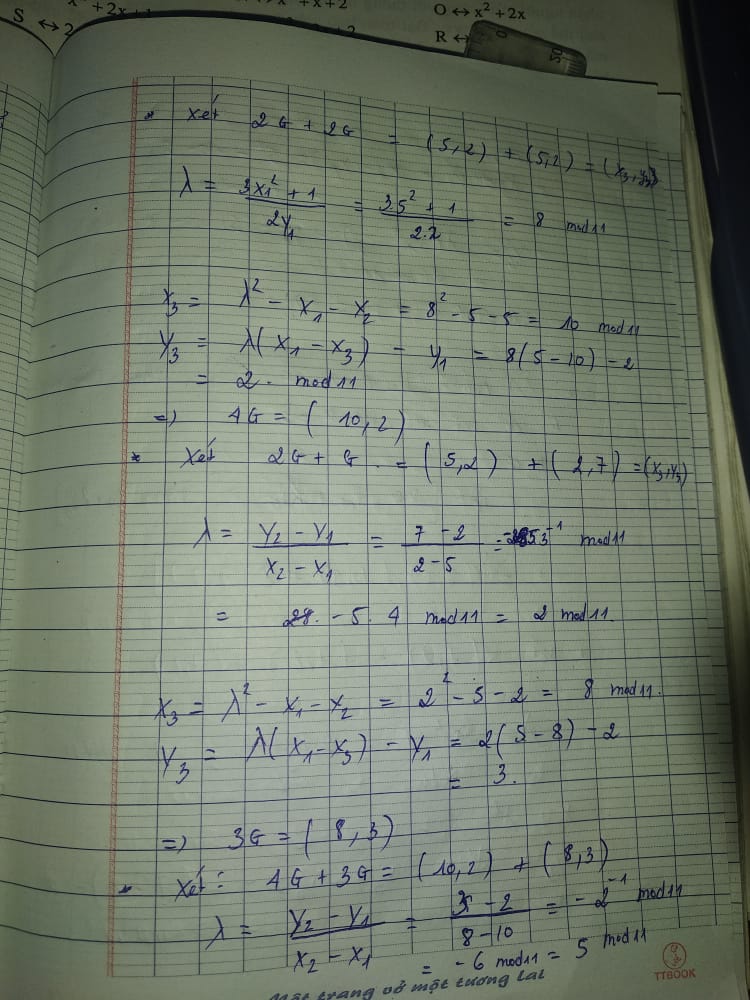 S ↔ 2
O ↔ x² + 2x
R ↔
50
* Xét 2G + 2G = (5,2) + (5,2) = (x₃,y₃)
λ = (3x₁² + 1) / (2y₁) = (3.5² + 1) / (2.2) = 8 mod 11
x₃ = λ² - x₁ - x₂ = 8² - 5 - 5 = 10 mod 11
y₃ = λ(x₁ - x₃) - y₁ = 8(5 - 10) - 2
= 2. mod 11
=) 4G = (10,2)
* Xét 2G + G. = (5,2) + (2,7) = (x₃,y₃)
λ = (y₂ - y₁) / (x₂ - x₁) = (7 - 2) / (2 - 5) = -5.3⁻¹ mod 11
= -5.4 mod 11 = 2 mod 11.
x₃ = λ² - x₁ - x₂ = 2² - 5 - 2 = 8 mod 11.
y₃ = λ(x₁ - x₃) - y₁ = 2(5 - 8) - 2
= 3.
=) 3G = (8,3)
* Xét: 4G + 3G = (10,2) + (8,3)
λ = (y₂ - y₁) / (x₂ - x₁) = (3 - 2) / (8 - 10) = -2⁻¹ mod 11
= -6 mod 11 = 5 mod 11
Một trang vở một tương lai
TTBOOK